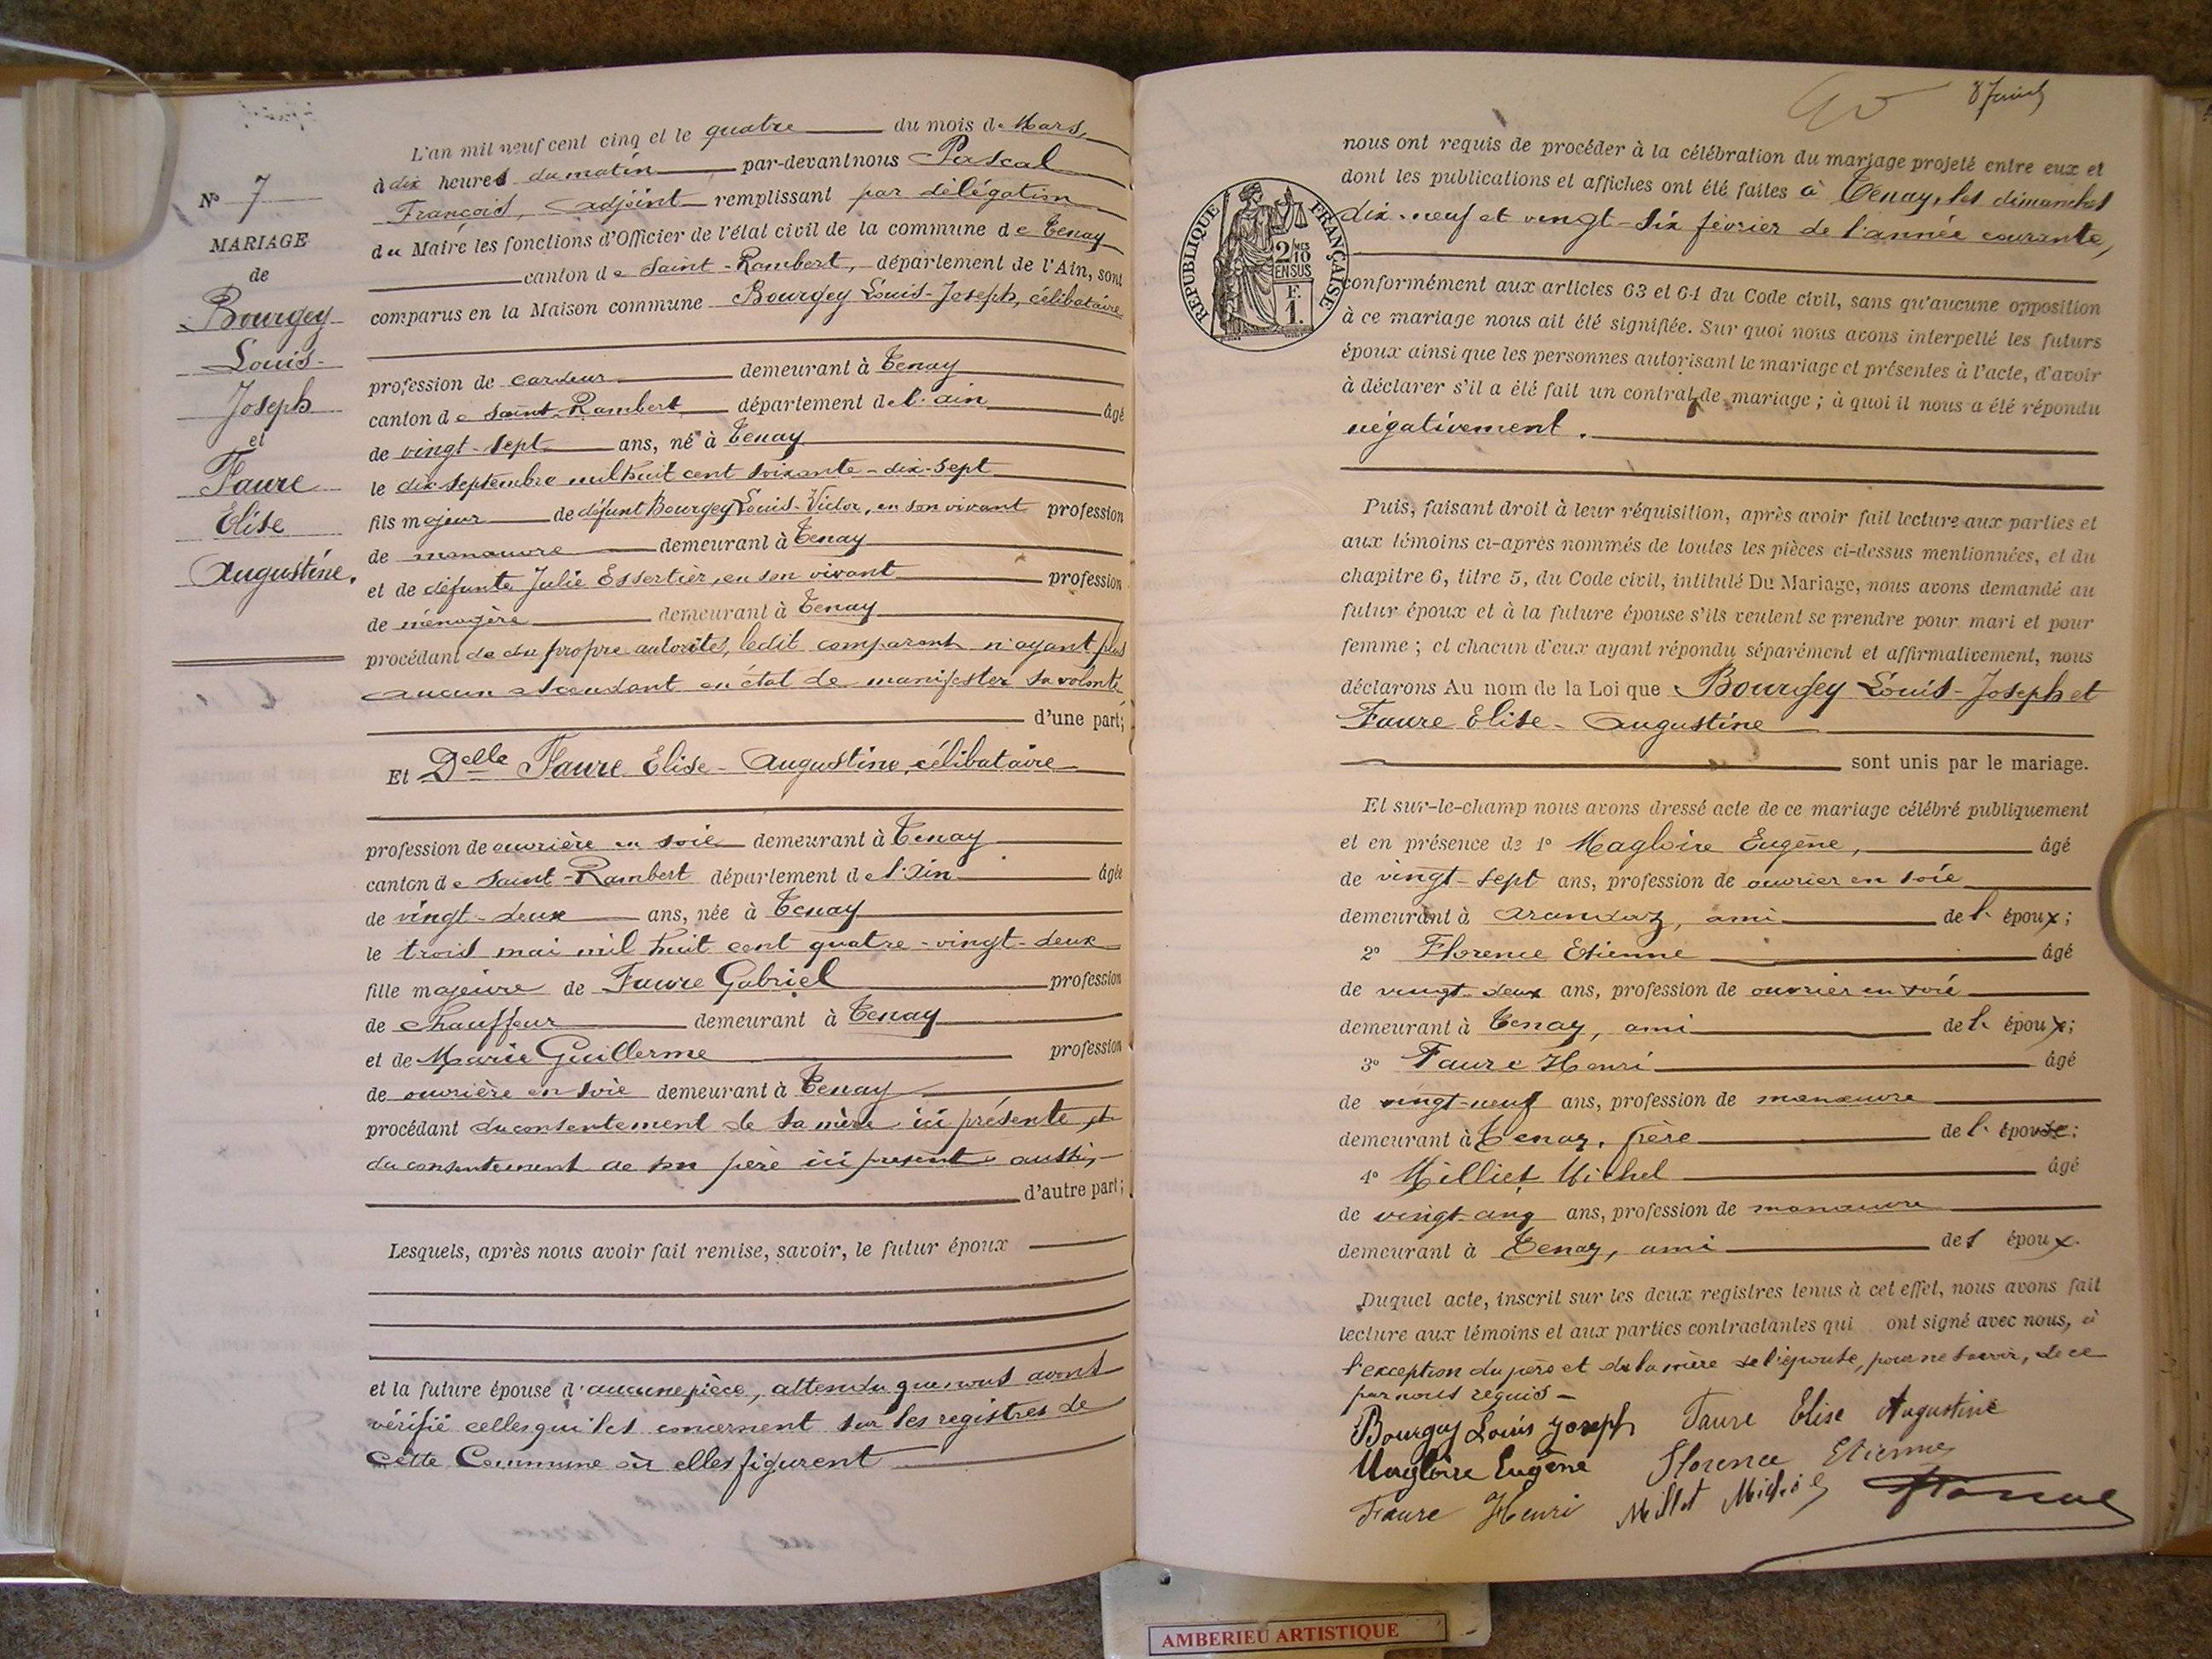 L'an mil neuf cent cinq et le quatre du mois de Mars,
à dix heures du matin par-devant nous Pascal
François, adjoint remplissant par délégation
du Maire les fonctions d'Officier de l'état civil de la commune de Tenay
canton de Saint-Rambert, département de l'Ain, sont
comparus en la Maison commune Bourgey Louis-Joseph, célibataire
profession de cardeur demeurant à Tenay
canton de Saint-Rambert département de l'ain âgé
de vingt-sept ans, né à Tenay
le dix septembre mil huit cent soixante-dix-sept
fils majeur de défunt Bourgey Louis-Victor, en son vivant profession
de manœuvre demeurant à Tenay
et de défunte Julie Essertier, en son vivant profession
de ménagère demeurant à Tenay
procédant de sa propre autorité, ledit comparant n'ayant plus
aucun ascendant en état de manifester sa volonté
d'une part;
Et Delle Faure Elise-Augustine, célibataire
profession de ouvrière en soie demeurant à Tenay
canton de Saint-Rambert département de l'Ain âgée
de vingt-deux ans, née à Tenay
le trois mai mil huit cent quatre-vingt-deux
fille majeure de Faure Gabriel profession
de chauffeur demeurant à Tenay
et de Marie Guillerme profession
de ouvrière en soie demeurant à Tenay
procédant du consentement de sa mère ici présente, et
du consentement de son père ici présent aussi,
d'autre part;
Lesquels, après nous avoir fait remise, savoir, le futur époux
et la future épouse d'aucune pièce, attendu que nous avons
vérifié celles qui les concernent sur les registres de
cette Commune où elles figurent
No 7
MARIAGE
de
Bourgey
Louis-
Joseph
et
Faure
Elise
Augustine.
nous ont requis de procéder à la célébration du mariage projeté entre eux et
dont les publications et affiches ont été faites à Tenay, les dimanches
dix-neuf et vingt-six février de l'année courante,
RÉPUBLIQUE FRANÇAISE
2/10 MES
EN SUS
F.
1.
conformément aux articles 63 et 64 du Code civil, sans qu'aucune opposition
à ce mariage nous ait été signifiée. Sur quoi nous avons interpellé les futurs
époux ainsi que les personnes autorisant le mariage et présentes à l'acte, d'avoir
à déclarer s'il a été fait un contrat de mariage; à quoi il nous a été répondu
négativement.
Puis, faisant droit à leur réquisition, après avoir fait lecture aux parties et
aux témoins ci-après nommés de toutes les pièces ci-dessus mentionnées, et du
chapitre 6, titre 5, du Code civil, intitulé Du Mariage, nous avons demandé au
futur époux et à la future épouse s'ils veulent se prendre pour mari et pour
femme; et chacun d'eux ayant répondu séparément et affirmativement, nous
déclarons Au nom de la Loi que Bourgey Louis-Joseph et
Faure Elise-Augustine
sont unis par le mariage.
Et sur-le-champ nous avons dressé acte de ce mariage célébré publiquement
et en présence de 1° Magloire Eugène, âgé
de vingt-sept ans, profession de ouvrier en soie
demeurant à Arandaz, ami de l' époux;
2° Florence Etienne âgé
de vingt-deux ans, profession de ouvrier en soie
demeurant à Tenay, ami de l' époux;
3° Faure Henri âgé
de vingt-neuf ans, profession de manœuvre
demeurant à Tenay, frère de l' épouse;
4° Milliet Michel âgé
de vingt-cinq ans, profession de manœuvre
demeurant à Tenay, ami des époux.
Duquel acte, inscrit sur les deux registres tenus à cet effet, nous avons fait
lecture aux témoins et aux parties contractantes qui ont signé avec nous, à
l'exception du père et de la mère de l'épouse, pour ne savoir, de ce
par nous requis
Bourgey Louis Joseph Faure Elise Augustine
Magloire Eugène Florence Etienne
Faure Henri Millet Michel
AMBERIEU ARTISTIQUE